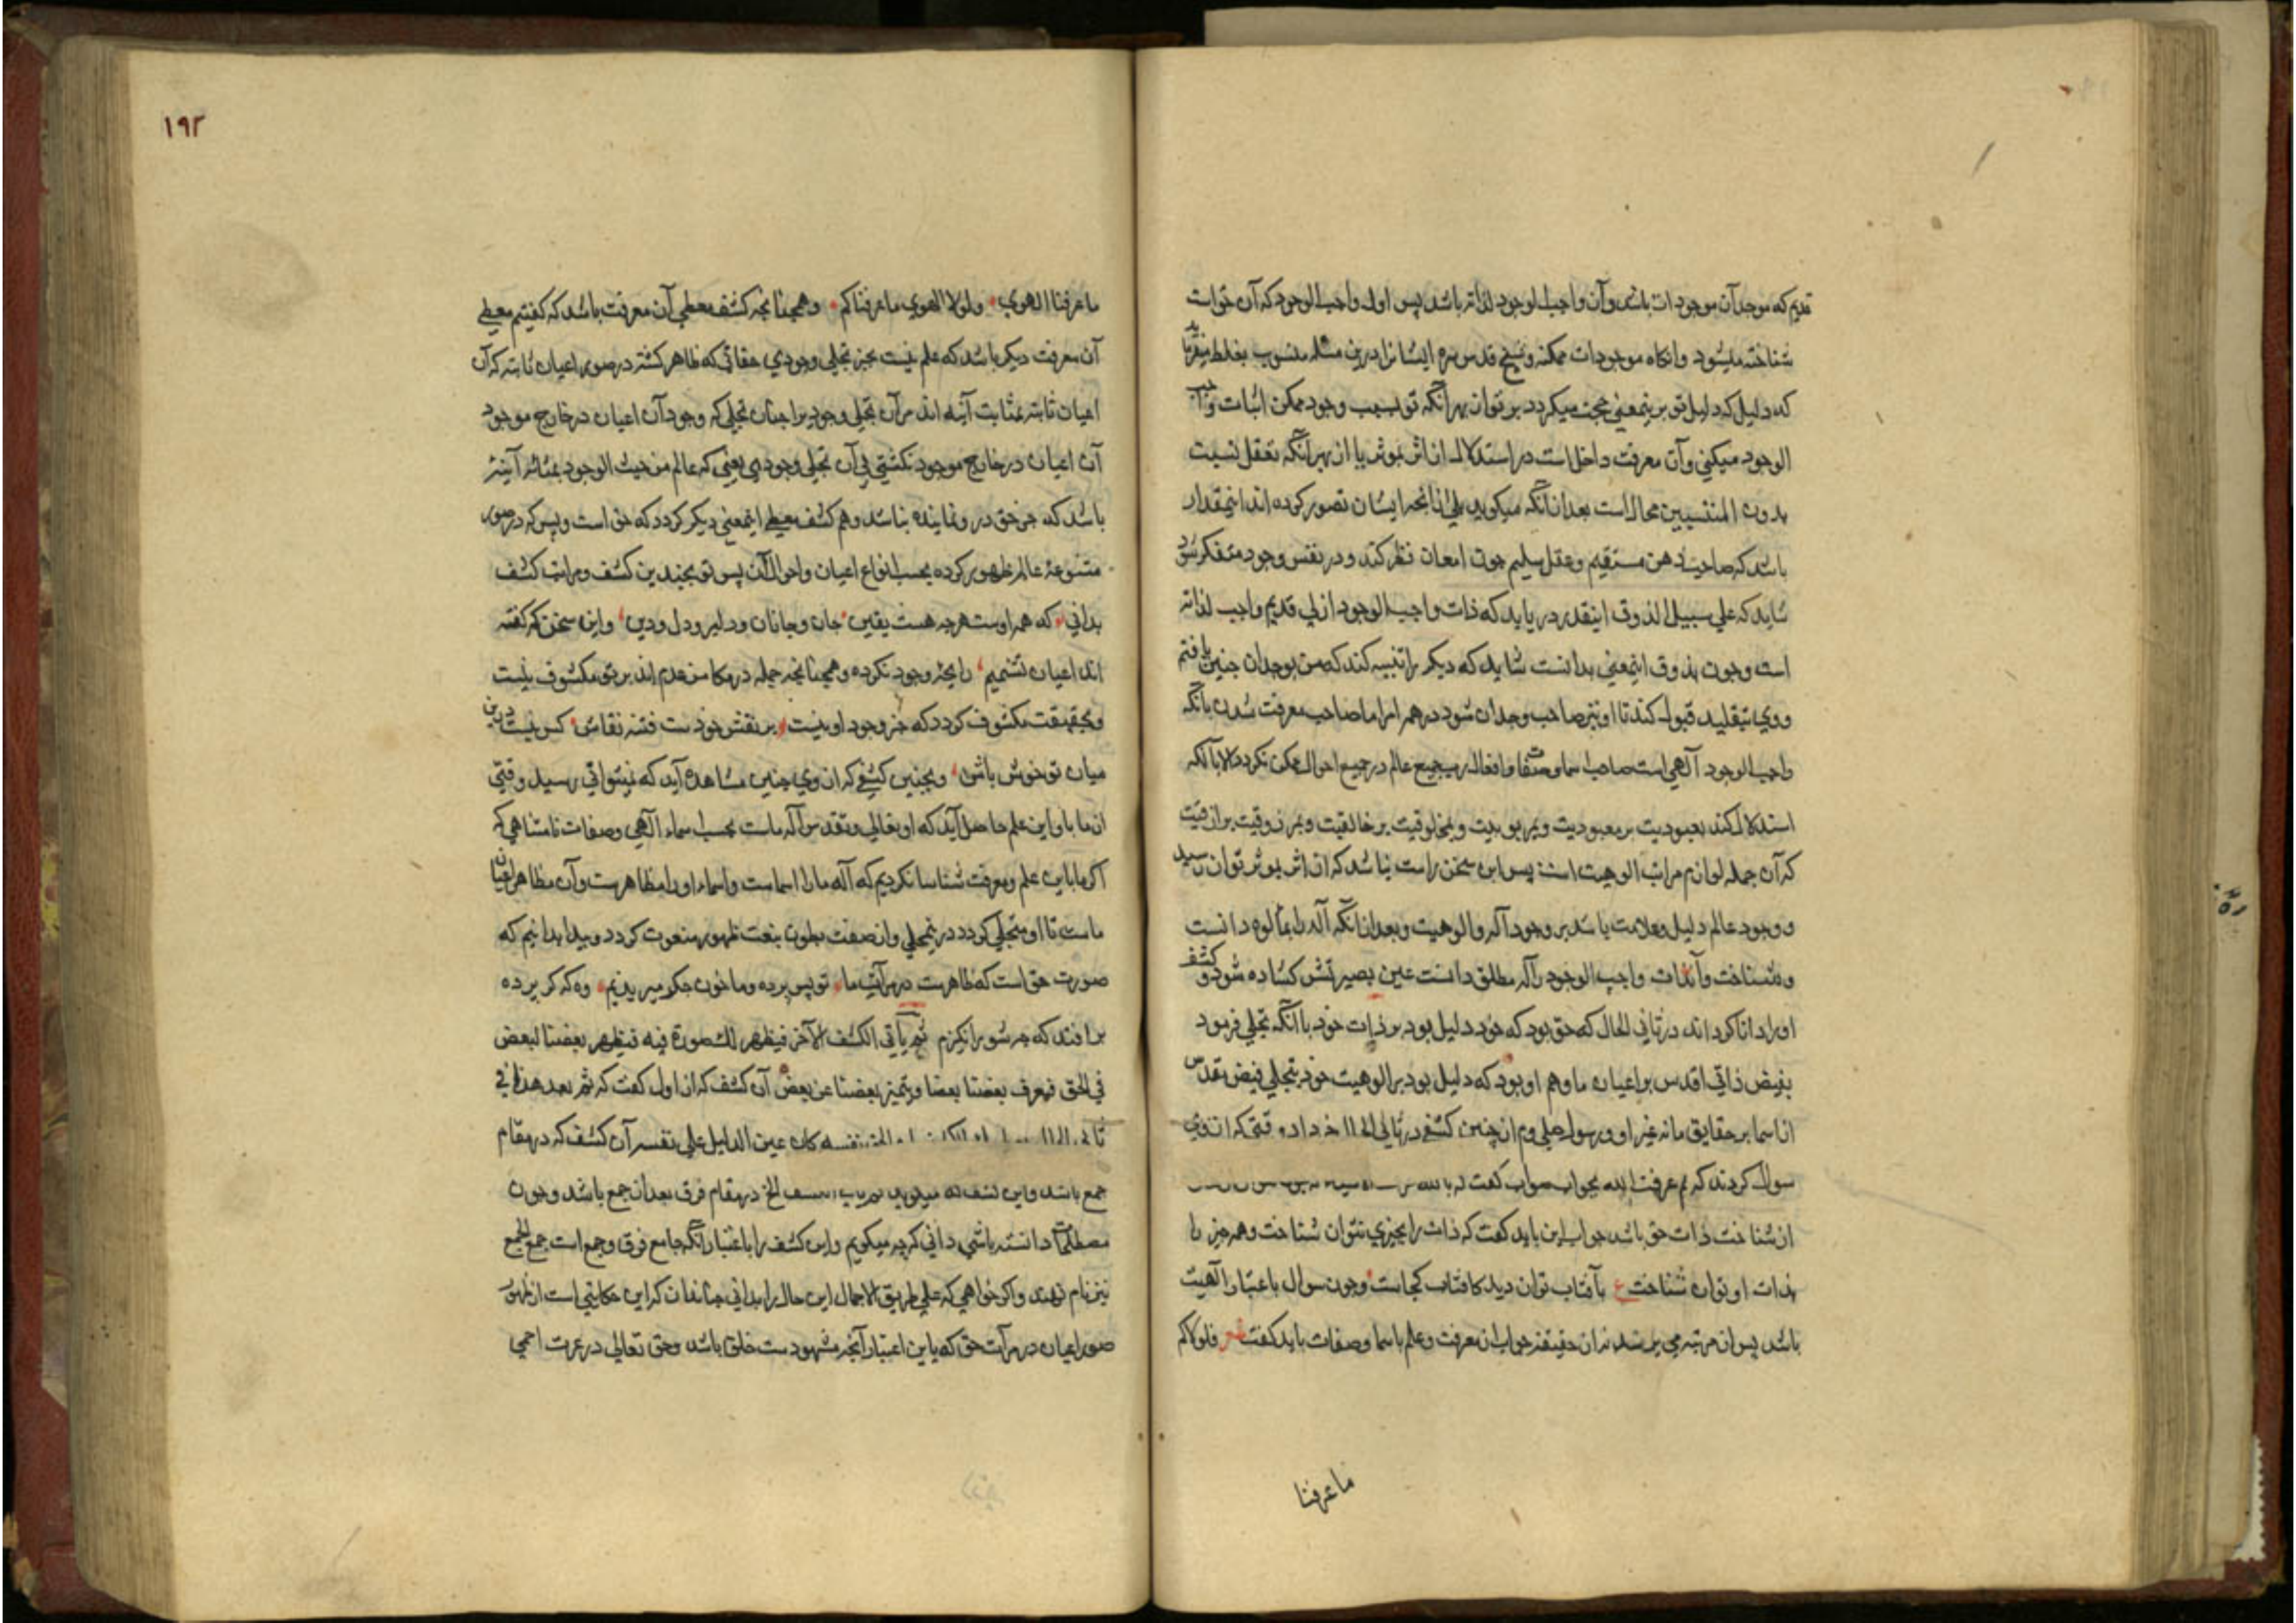 قدیم که موجد آن موجودات باشد و آن واجب الوجود لذاته باشد پس اول واجب الوجود که آن حق است
شناخته میشود وانکاه موجودات ممکنه وشیخ قدس سره ایشانرا درین مسئله منسوب بغلط
که دلیل که دلیل تو برینمعنی حجت میکردد بر توان بهر آنکه تو بسبب وجود ممکن اثبات واجب
الوجود میکنی وآن معرفت داخل است در استدلال از اثر بموثر یا از بهر آنکه تعقل نسبت
بدون المنتسبین محال است بعد ازانکه میکوید بلی ازانجه ایشان تصور کرده اند اینمقدار
باشد که صاحب ذهن مستقیم وعقل سلیم چون امعان نظر کند ودر نفس وجود متفکر شود
شاید که علی سبیل الذوق اینقدر در یابد که ذات واجب الوجود ازلی قدیم واجب لذاته
است وچون بذوق اینمعنی بدانست شاید که دیکر را تنبیه کند که من بوجدان چنین یافتم
ووی بتقلید قبول کند تا او نیز صاحب وجدان شود در همر امرا ما صاحب معرفت شدن بانکه
واجب الوجود آلهی است صاحب اسما وصفات وافعال رب جمیع عالم در جمیع احوال ممکن نکردد الا بآنکه
استدلال کند بعبودیت بر معبودیت وبمربوبیت وبمخلوقیت بر خالقیت وبمرزوقیت بر ازقیت
که آن جمله لوازم مراتب الوهیت است پس این سخن راست باشد که از اثر بموثر توان رسید
ووجود عالم دلیل وعلامت باشد بر وجود آله والوهیت وبعد ازانکه آله را بمألوه دانست
وشناخت وآنذات واجب الوجود را آله مطلق دانست عین بصیرتش کشاده شود وکشف
اورا دانا کرداند در ثانی الحال که حق بود که خود دلیل بود بر ذات خود با آنکه تجلی فرمود
بفیض ذاتی اقدس بر اعیان ما وهم او بود که دلیل بود بر الوهیت خود بتجلی فیض مقدس
از اسما بر حقایق ما نه غیر او ورسول صلی وم از چنین کشفی در ثانی الحال خبر داد وقتی که ازوی
سوال کردند که بم عرفت الله بجواب صواب کفت که بالله
از شناخت ذات حق باشد جواب این باید کفت که ذات را بچیزی نتوان شناخت وهمه چیز را
بذات او توان شناخت ع بآفتاب توان دید کافتاب کجاست وچون سوال باعتبار الهیت
باشد پس ازان مرتبه می پرسد نه از حقیقة جواب از معرفت وعلم باسما وصفات باید کفت شعر فلولاکم
ما عرفنا
۱۹۲
ما عرفنا الهوی ولولا الهوی ما عرفناکم وهمچنانجه کشف معطی آن معرفت باشد که کفتیم معطی
آن معرفت دیکر باشد که علم نیست بجز تجلی وجودی حقانی که ظاهر کشته در صور اعیان ثابته که آن
اعیان ثابته بمثابت آینه اند مر آن تجلی وجودیرا چنان تجلی که وجود آن اعیان در خارج موجود
آن اعیان در خارج موجود نکشتی بی آن تجلی وجودی یعنی که عالم من حیث الوجود بمثابه آینهٔ
باشد که جز حق در و نماینده نباشد وهم کشف معطی اینمعنی دیکر کردد که حق است وبس که در صور
متنوعهٔ عالم ظهور کرده بحسب انواع اعیان واحوال آن پس تو بچندین کشف ومراتب کشف
بدانی که همه اوست هرچه هست یقین جان وجانان ودلبر ودل ودین واین سخن که کفته
اند اعیان نشمیم رایحهٔ وجود نکرده وهمچنانجه جمله در مکامن عدم اند بر تو مکشوف نیست
وبحقیقت مکشوف کردد که جز وجود او نیست بر نقش خودست فتنه نقاش کس نیست درین
میان تو خوش باش وبچنین کشفی که ازوی چنین مشاهده آید که نمیتوانی رسید وقتی
از ما باو این علم حاصل آید که او تعالی وتقدس آله ماست بحسب اسماء آلهی وصفات نامتناهی که
اکر ما باین علم ومعرفت شناسا نکردیم که آله ما را اسماست واسماء او را مظاهرست وآن مظاهر اعیان
ماست تا او متجلی کردد در ینمجلی واز صفت بطون بنعت ظهور منعوت کردد وپیدا بدانیم که
صورت حق است که ظاهرست در مرآت ما تو پس پرده وما خون جکر میریزیم وه که کر پرده
برافتد که چه شور انکیزم ثم یأتی الکشف الآخر فیظهر لک صورة فیه فیظهر بعضنا لبعض
فی الحق فیعرف بعضنا بعضا ویتمیز بعضنا عن بعض آن کشف که از اول کفت که ثم بعد هذا فی
ثانی الحال الحق نفسه کان عین الدلیل علی نفسه آن کشف که در مقام
جمع باشد واین کشف که میکوید ثم یأتی الکشف الخ در مقام فرق بعد از جمع باشد وچون
مصطلحات دانسته باشی دانی که چه میکویم واین کشف را باعتبار آنکه جامع فرق وجمع است جمع الجمع
نیز نام نهند واکر خواهی که علی طریق الاجمال این حال را بدانی چنان دان که این حکایتی است از ظهور
صور اعیان در مرآت حق که باین اعتبار آنچه مشهودست خلق باشد وحق تعالی در عزت احمی